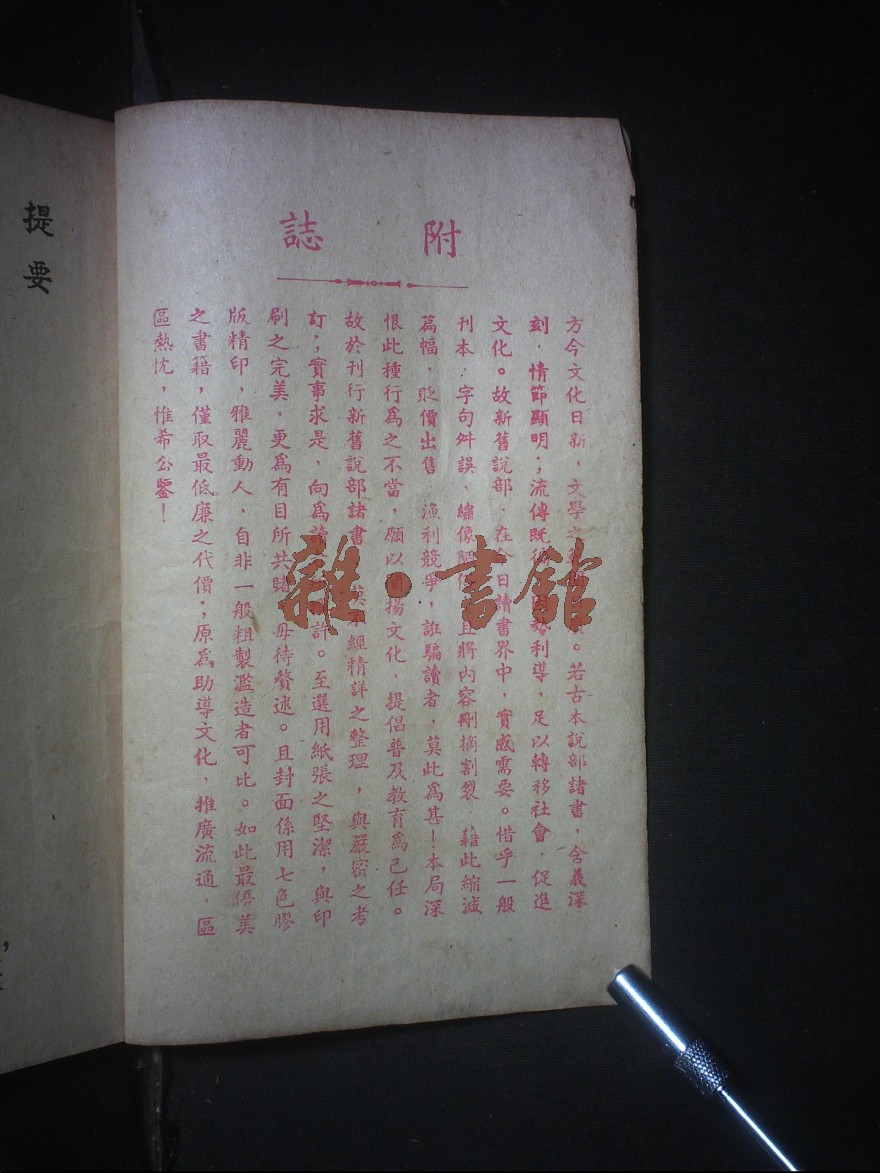 附誌
方今文化日新，文學之。若古本說部諸書，含義深
刻，情節顯明；流傳既勢利導，足以轉移社會，促進
文化。故新舊說部，在今日讀書界中，實感需要。惜乎一般
刊本，字句舛誤，繡像且將內容刪摘割裂，藉此縮減
篇幅，貶價出售，漁利競爭，誑騙讀者，莫此爲甚！本局深
恨此種行爲之不當，願以闡揚文化，提倡普及教育爲己任。
故於刊行新舊說部諸書經精詳之整理，與嚴密之考
訂；實事求是，向爲許。至選用紙張之堅潔，與印
刷之完美，更爲有目所共睹，毋待贅述。且封面係用七色膠
版精印，雅麗動人，自非一般粗製濫造者可比。如此最優美
之書籍，僅取最低廉之代價；原爲助導文化，推廣流通、區
區熱忱，惟希公鑒！
提要
雜·書館